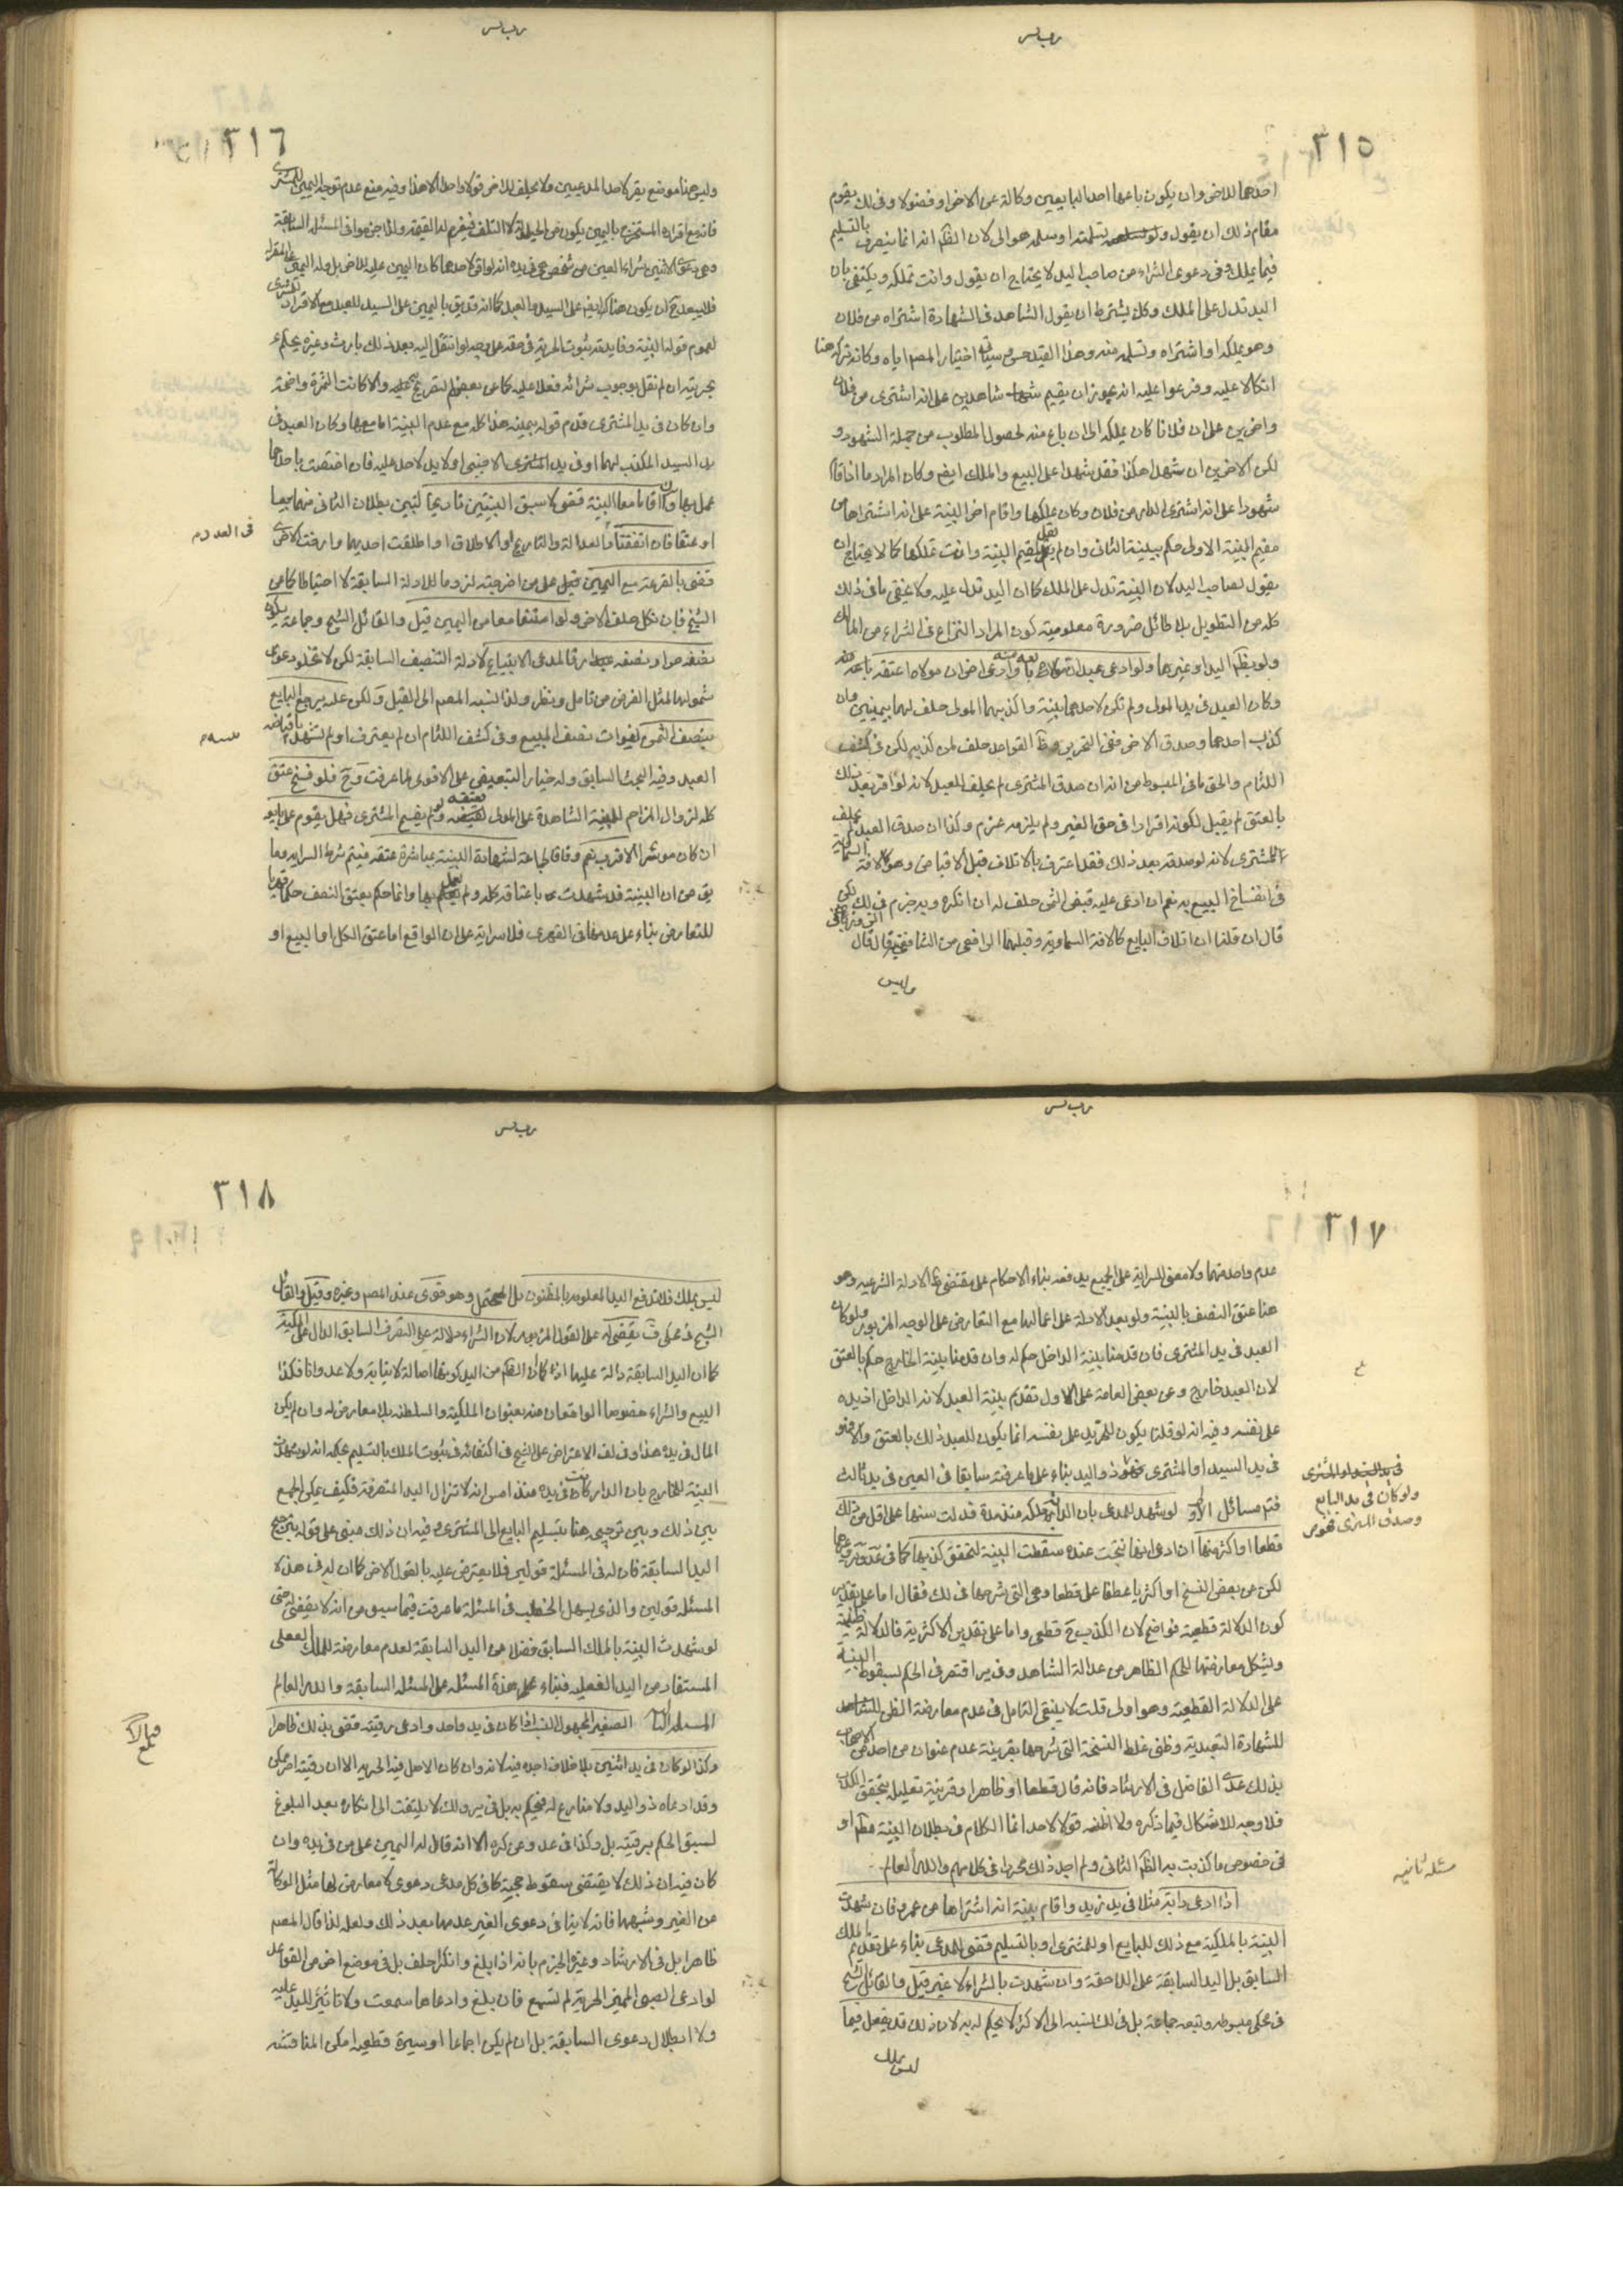 ٣١٥
احدهما للاخر وان يكون باعها احد البايعين وكالة عن الاخر او فضولا وفى لك يقوم
مقام ذلك ان يقول وتسلمتها او سلمه هو الى لان الظ انه انما يتصرف بالتسليم
فيما يملك وفى دعوى الشراء من صاحب اليد لا يحتاج ان يقول وانت تملكه ويكتفى بان
اليد تدل على الملك وكك يشترط ان يقول الشاهد فى الشهادة اشتراه من فلان
وهو يملكه او اشتراه وتسلمه منه وهذا القيد حسن وسياتى اختيار المصم اياه وكانه تركه هنا
اتكالا عليه وفرعوا عليه انه يجوز ان يقيم شاهدين على انه اشترى من فلان
واخرين على ان فلانا كان يملكه الى ان باع منه لحصول المطلوب من جملة الشهود و
لكن الاخرين ان شهدا هكذا فقد شهدا على البيع والملك ايض وكان المراد ما اذا اقام
شهودا على انه اشترى الدار من فلان وكان يملكها واقام اخر البينة على انه اشتراها من
مقيم البينة الاولى حكم ببينة الثانى وان لم يقل لمقيم البينة وانت تملكها كما لا يحتاج ان
يقول لصاحب اليد لان البينة تدل على الملك كما ان اليد تدل عليه ولا يخفى ما فى ذلك
كله من التطويل بلا طائل ضرورة معلومية كون المراد النزاع فى الشراء من المالك
ولو بظ اليد او غيرها ولو ادعى عبد ان مولاه اعتقه وادعى اخر ان مولاه باعه منه
وكان العبد فى يد المولى ولم تكن لاحدهما بينة واكذبهما المولى حلف لهما يمينين وان
كذب احدهما وصدق الاخر ففى التحرير وظ القواعد حلف لمن كذبه لكن فى كشف
اللثام والحق ما فى المبسوط من انه ان صدق المشترى لم يحلف للعبد لانه لو اقر بعد ذلك
بالعتق لم يقبل لكونه اقرارا فى حق الغير ولم يلزمه غرم وكذا ان صدق العبد لم يحلف
للمشترى لانه لو صدقه بعد ذلك فقد اعترف بالاتلاف قبل الاقباض وهو كالافة السماوية
فى انفساخ البيع به نعم ان ادعى عليه قبض الثمن حلف له ان انكره وبه جزم فى لك لكن
قال ان قلنا ان اتلاف البايع كالافة السماوية وقبلهما الرافعى من الشافعية قال
وليس
٣١٦
وليس هنا موضع يقر لاحد المدعيين ولا يحلف للاخر قولا واحدا الا هذا وفيه منع عدم توجه اليمين للمشترى
وهى دعوى الاثنين شراء العين من شخص هى فى يده انه لو اقر لاحدهما كان اليمين عليه للاخر
فلا يبعد ح ان يكون هنا
لعموم قوله البينة وفايدته ثبوت الحرية فى حقه على وجه لو انتقل اليه بعد ذلك بارث وغيره يحكم
بحريته ان لم نقل بوجوب شرائه فعلا عليه كما عن بعضهم التصريح والا كانت الثمرة واضحة
وان كان فى يد المشترى قدم قوله بيمينه هذا كله مع عدم البينة اما معها وكان العبد فى
يد السيد المكذب لهما او فى يد المشترى الاجنبى او لا يد لاحد عليه فان اختصت باحدهما
عمل بها وان اقاما معا البينة قضى لاسبق البينتين تاريخا لتبين بطلان الثانى منهما بيعا
او عتقا فان اتفقتا بالعدالة والتاريخ او الاطلاق او اطلقت احديهما وارخت الاخرى
فى العدد م
قضى بالقرعة مع اليمين على من اخرجته لزوما للادلة السابقة لا احتياطا كما عن
الشيخ فان نكل حلف الاخر ولو امتنعا معا من اليمين قيل والقائل الشيخ وجماعة يكون
نصفه حرا ونصفه رقا لمدعى الابتياع لادلة التنصيف السابقة لكن لا تخلو دعوى
شمولها لمثل الفرض من تامل ونظر ولذا نسبه المصم الى القيل ولكن عليه يرجع البايع
بنصف الثمن لفوات نصف المبيع وفى كشف اللثام ان لم يعترف او لم تشهد باقباضه
العبد وفيه البحث السابق وله خيار التبعيض على الاقوى لما عرفت وح فلو فسخ عتق
كله لزوال المزاحم للبينة الشاهدة على المولى بعتقه ولو لم يفسخ المشترى فهل يقوم على بايعه
ان كان موسرا الاقرب نعم وفاقا لجماعة لشهادة البينة بمباشرة عتقه فيتم شرط السراية وما
يق من ان البينة قد شهدت باعتاقه كله ولم يعمل بها وانما حكم بعتق النصف حكما قهريا
للتعارض بناء على عدم منافاة القهرى فلا سراية على ان الواقع اما عتق الكل او البيع او
٣١٧
عدم واحد منهما ولا معنى للسراية على الجميع يدفعه بناء الاحكام على مقتضى الادلة الشرعية وهو
هنا عتق النصف بالبينة ولو بعد الادلة على اعمالها مع التعارض على الوجه المزبور ولو كان
العبد فى يد المشترى فان قدمنا بينة الداخل حكم له وان قدمنا بينة الخارج حكم بالعتق
لان العبد خارج وعن بعض العامة على الاول تقديم بينة العبد لانه الداخل اذ يده
على نفسه وفيه انه لو قلنا يكون للحر يد على نفسه انما يكون للعبد ذلك بالعتق والا فهو
فى يد السيد او المشترى ذو اليد بناء على ما عرفته سابقا فى العين فى يد ثالث
ولو كان فى يد البايع
وصدق المشترى فهو من
فتم مسائل الاولى لو شهد للمدعى بان الدابة ملكه منذ مدة فدلت سنها على اقل من ذلك
قطعا او اكثر منها ان ادعى انها نتجت عنده سقطت البينة لتحقق كذبها كما فى عد
لكن عن بعض النسخ او اكثريا عطفا على قطعا وهى التى شرحها فى لك فقال اما على تقدير
كون الدلالة قطعية فواضح لان الكذب ح قطعى واما على تقدير الاكثرية فالدلالة ظنية
ويشكل معارضتها للحكم الظاهر من عدالة الشاهد وفى ير اقتصر فى الحكم بسقوط البينة
على الدلالة القطعية وهو اولى قلت لا ينبغى التامل فى عدم معارضة الظن
للشهادة التعبدية وظنى غلط النسخة التى شرحها بقرينة عدم عنوان من احد من الاصحاب
بذلك عدى الفاضل فى الارشاد فانه قال قطعا او ظاهرا وقرينة تعليله بتحقق الكذب
فلا وجه للاشكال فيما ذكره ولا اظنه قولا لاحد انما الكلام فى بطلان البينة مط او
فى خصوص ما كذبت به الظ الثانى ولم اجد ذلك محررا فى كلامهم والله العالم
مسئله ثانيه
اذا ادعى دابة مثلا فى يد زيد واقام بينة انه اشتراها من عمرو فان شهدت
البينة بالملكية مع ذلك للبايع او للمشترى او بالتسليم قضى للمدعى بناء على تقديم بالملك
السابق بل اليد السابقة على اللاحقة وان شهدت بالشراء لا غير قيل والقائل الشيخ
فى محكى مبسوطه وتبعه جماعة بل فى لك نسبه الى الاكثر لا يحكم له به لان ذلك قد يفعل فيما
ليس بملك
٣١٨
ليس بملك فلا تدفع اليد المعلومة بالمظنون بل المحتمل وهو قوى عند المصم وغيره وقيل والقائل
الشيخ فى محكى ف يقضى له على القول المزبور لان الشراء دلالة على التصرف السابق الدال على الملكية
كما ان اليد السابقة دالة عليها اذ كما ان الظ من اليد كونها اصالة لا نيابة ولا عدوانا فكذا
البيع والشراء خصوصا الواقعان منه بعنوان الملكية والسلطنة بلا معارض له وان لم يكن
المال فى يده هذا وفى لك الاعتراض على الشيخ فى اكتفائه فى ثبوت الملك بالتسليم بحكمه انه لو شهدت
البينة للخارج بان الدار كانت فى يده منذ امس انه لا تزال اليد المتصرفة فكيف يمكن الجمع
بين ذلك وبين ترجيحه هنا بتسليم البايع الى المشترى وفيه ان ذلك مبنى على قوله بترجيح
اليد السابقة فان له فى المسئلة قولين فلا يعترض عليه بالقول الاخر كما ان له فى هذه
المسئلة قولين والذى يسهل الخطب فى المسئلة ما عرفت فيما سبق من انه لا يقضى له حتى
لو شهدت البينة بالملك السابق فضلا عن اليد السابقة لعدم معارضة للملك الفعلى
المستفاد من اليد الفعلية فبناء هذه المسئلة على المسئلة السابقة والله العالم
المسئلة الثالثة الصغير المجهول النسب اذا كان فى يد واحد وادعى رقيته قضى بذلك ظاهرا
وكذا لو كان فى يد اثنين بلا خلاف اجده فيه لانه وان كان الاصل فيه الحرية الا ان رقيته امر ممكن
وقد ادعاه ذو اليد ولا منازع له فيحكم به بل فى ير ولك لا يلتفت الى انكاره بعد البلوغ
لسبق الحكم برقيته بل وكذا فى عد وعن كره الا انه قال له اليمين على من فى يده وان
كان فيه ان ذلك لا يقتضى سقوط حجية كما فى كل مدعى دعوى لا معارض لها مثل الوكالة
عن الغير وشبهها فانه لا ينافى دعوى الغير عدمها بعد ذلك ولعله لذا قال المصم
ظاهرا بل فى الارشاد وغيره الجزم بانه اذا بلغ وانكر احلف بل فى موضع اخر من القواعد
لو ادعى الصبى المميز الحرية لم تسمع فان بلغ وادعاها سمعت ولا تاثير لليد عليه
ولا ابطال دعوى السابقة بل ان لم يكن اجماعا او سيرة قطعية امكن المناقشة